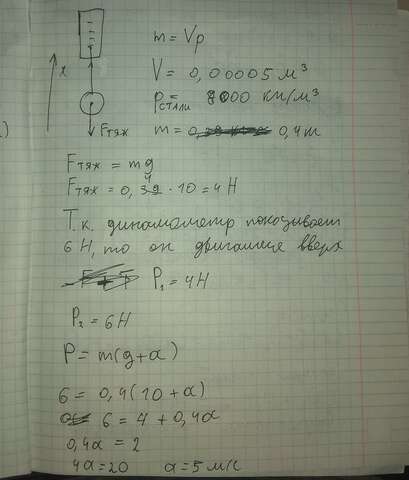 m = Vρ
x
V = 0,00005 м³
ρстали = 8000 кг/м³
Fтяж
m = 0,4
Fтяж = mg
Fтяж = 0,4 · 10 = 4 Н
Т.к. динамометр показывает
6 Н, то он двигался вверх
P₁ = 4Н
P₂ = 6Н
P = m(g+a)
6 = 0,4(10 + a)
6 = 4 + 0,4a
0,4a = 2
4a = 20 a = 5 м/с